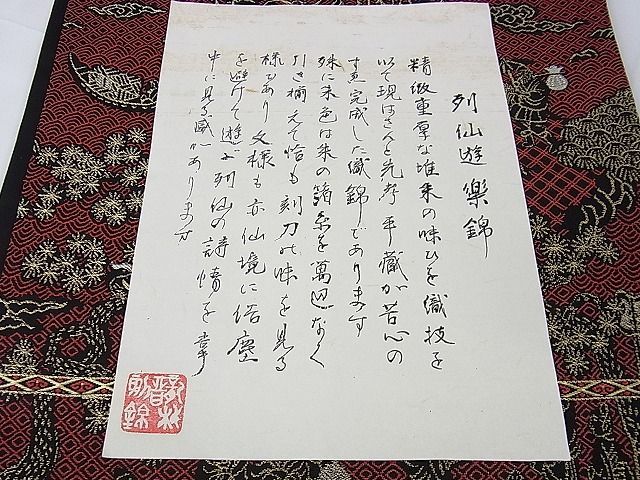 列仙遊樂錦
精緻重厚な堆朱の味ひを織技を
以て現はさんと先考平藏が苦心の
すゑ完成した織錦であります
殊に朱色は朱の箔糸を萬遍なく
引き揃えて恰も刻刀の味を見る
様であり文様も亦仙境に俗塵
を避けて遊ぶ列仙の詩情を掌
中に見る感があります